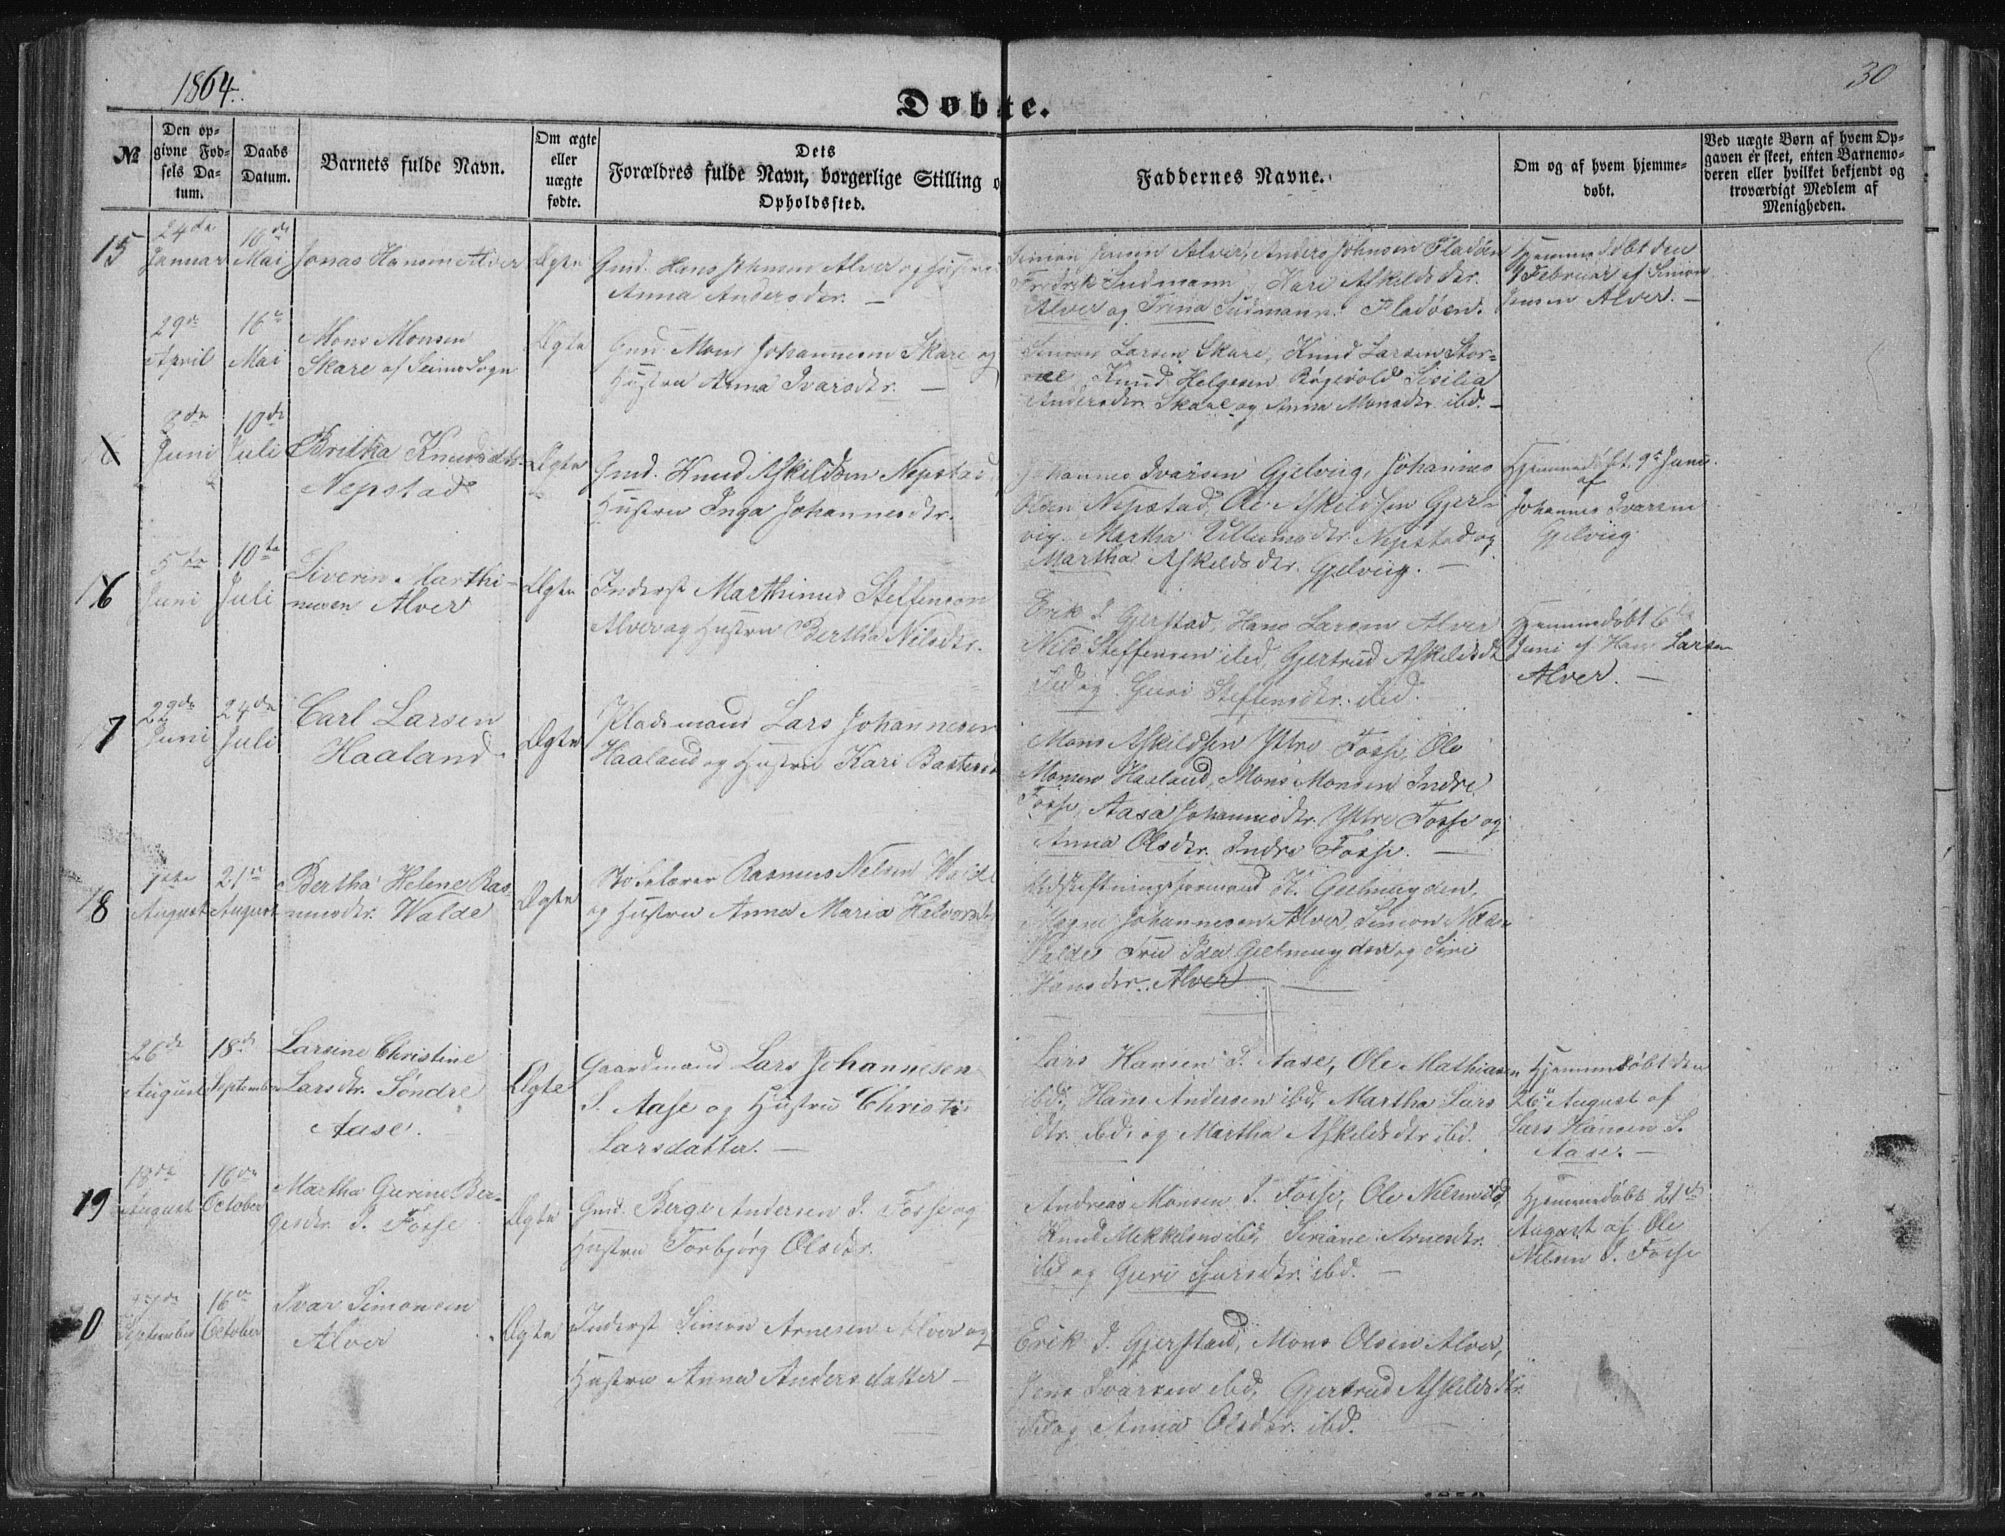 1864.
30
Døbte.
№
Den op-
givne Fød-
sels Da-
tum.
Daabs
Datum.
Barnets fulde Navn.
Om ægte
eller
uægte
fødte.
Dets
Forældres fulde Navn, borgerlige Stilling o
Opholdssted.
Faddernes Navne.
Om og af hvem hjemme-
døbt.
Ved uægte Børn af hvem Op-
gaven er skeet, enten Barnemo-
deren eller hvilket bekjendt og
troværdigt Medlem af
Menigheden.
15
24de
Januar
16de
Mai
Jonas Hansen Alver
Ægte
Gmd. Hans Johnsen Alver og Hustru
Anna Andersdtr. —
Simon Jensen Alver, Anders Johnsen Fladøen
Fredrik Sudmann, Kari Askildsdtr.
Alver og Trina Sudmann Fladøen.
Hjemmedøbt den
Februar af Simon
Jensen Alver. —
29de
April
16de
Mai
Mons Monsen
Skare af Seims Sogn
Ægte
Gmd. Mons Johannesen Skare og
Hustru Anna Ivarsdtr. —
Simon Larsen Skare, Knud Larsen Stor-
Knud Helgesen Sisilia
Andersdtr. Skare og Anna Monsdtr. ibd. —
8de
Juni
10de
Juli
Britha Knudsdtr.
Nepstad
Ægte
Gmd. Knud Askildsen Nepstad
Hustru Inga Johannesdtr.
Johannes Ivarsen Gjelvig, Johannes
Nepstad, Ole Askildsen Gjel-
vig, Martha Nepstad og
Martha Askildsdtr. Gjelvig. —
Hjemmedøbt 9de Juni
af
Johannes Ivarsen
Gjelvig
16
5te
Juni
10de
Juli
Siveren Marthi-
nusen Alver
Ægte
Inderst Marthinus Steffenson
Alver og Hustru Bertha Nilsdtr.
Erik I. Gjerstad, Hans Larsen Alver
Nils Steffensen ibd, Gjertrud Askildsdtr
ibd og Guri Steffensdtr. ibd.
Hjemmedøbt 6
Juni af Hans Larsen
Alver. —
17
22de
Juni
24de
Juli
Carl Larsen
Haaland
Ægte
Pladsmand Lars Johannesen
Haaland og Hustru Kari
Mons Askildsen Yttre Fosse, Ole
Monsen Haaland, Mons Monsen Indre
Fosse, Aasa Johannesdtr. Yttre Fosse og
Anna Olsdtr. Indre Fosse. —
18
1ste
August
21de
August
Bertha Helene Ras-
musdtr. Walde
Ægte
Skolelærer Rasmus Nelsen Walde
og Hustru Anna Maria Halvorsdtr
Udskiftningsformand H. Gjelmuyden,
Mogne Johannesen Alver, Simon
Walde Fru Ida Gjelmuyden og Siri
Hansdtr. Alver
26de
August
18de
September
Larsine Christine
Larsdtr. Søndre
Aase.
Ægte
Gaardmand Lars Johannesen
S. Aase og Hustru Christi
Larsdatter. —
Lars Hansen S. Aase, Ole Mathiasen
ibd, Hans Andersen ibd, Martha Lars
dtr. ibd. og Martha Askildsdtr ibd.
Hjemmedøbt den
26de August af
Lars Hansen S.
Aase. —
19
18de
August
16de
October
Martha Gurine Ber-
gesdtr. I. Fosse
Ægte
Gmd. Berge Andersen I. Fosse og
Hustru Torbjørg Olsdtr.
Andreas Monsen I. Fosse, Ole Nilsen ibd,
Knud Mikkelsen ibd, Siriane Arnesdtr.
ibd og Guri ibd. —
Hjemmedøbt 21de
August af Ole
Nilsen I. Fosse
0
September
16de
October
Ivar Simonsen
Alver
Ægte
Inderst Simon Arnesen Alver og
Hustru Anna Andersdatter —
Erik I. Gjerstad, Mons Olsen Alver,
Jens Ivarsen ibd, Gjertrud Askildsdtr.
ibd og Anna Olsdtr. ibd.